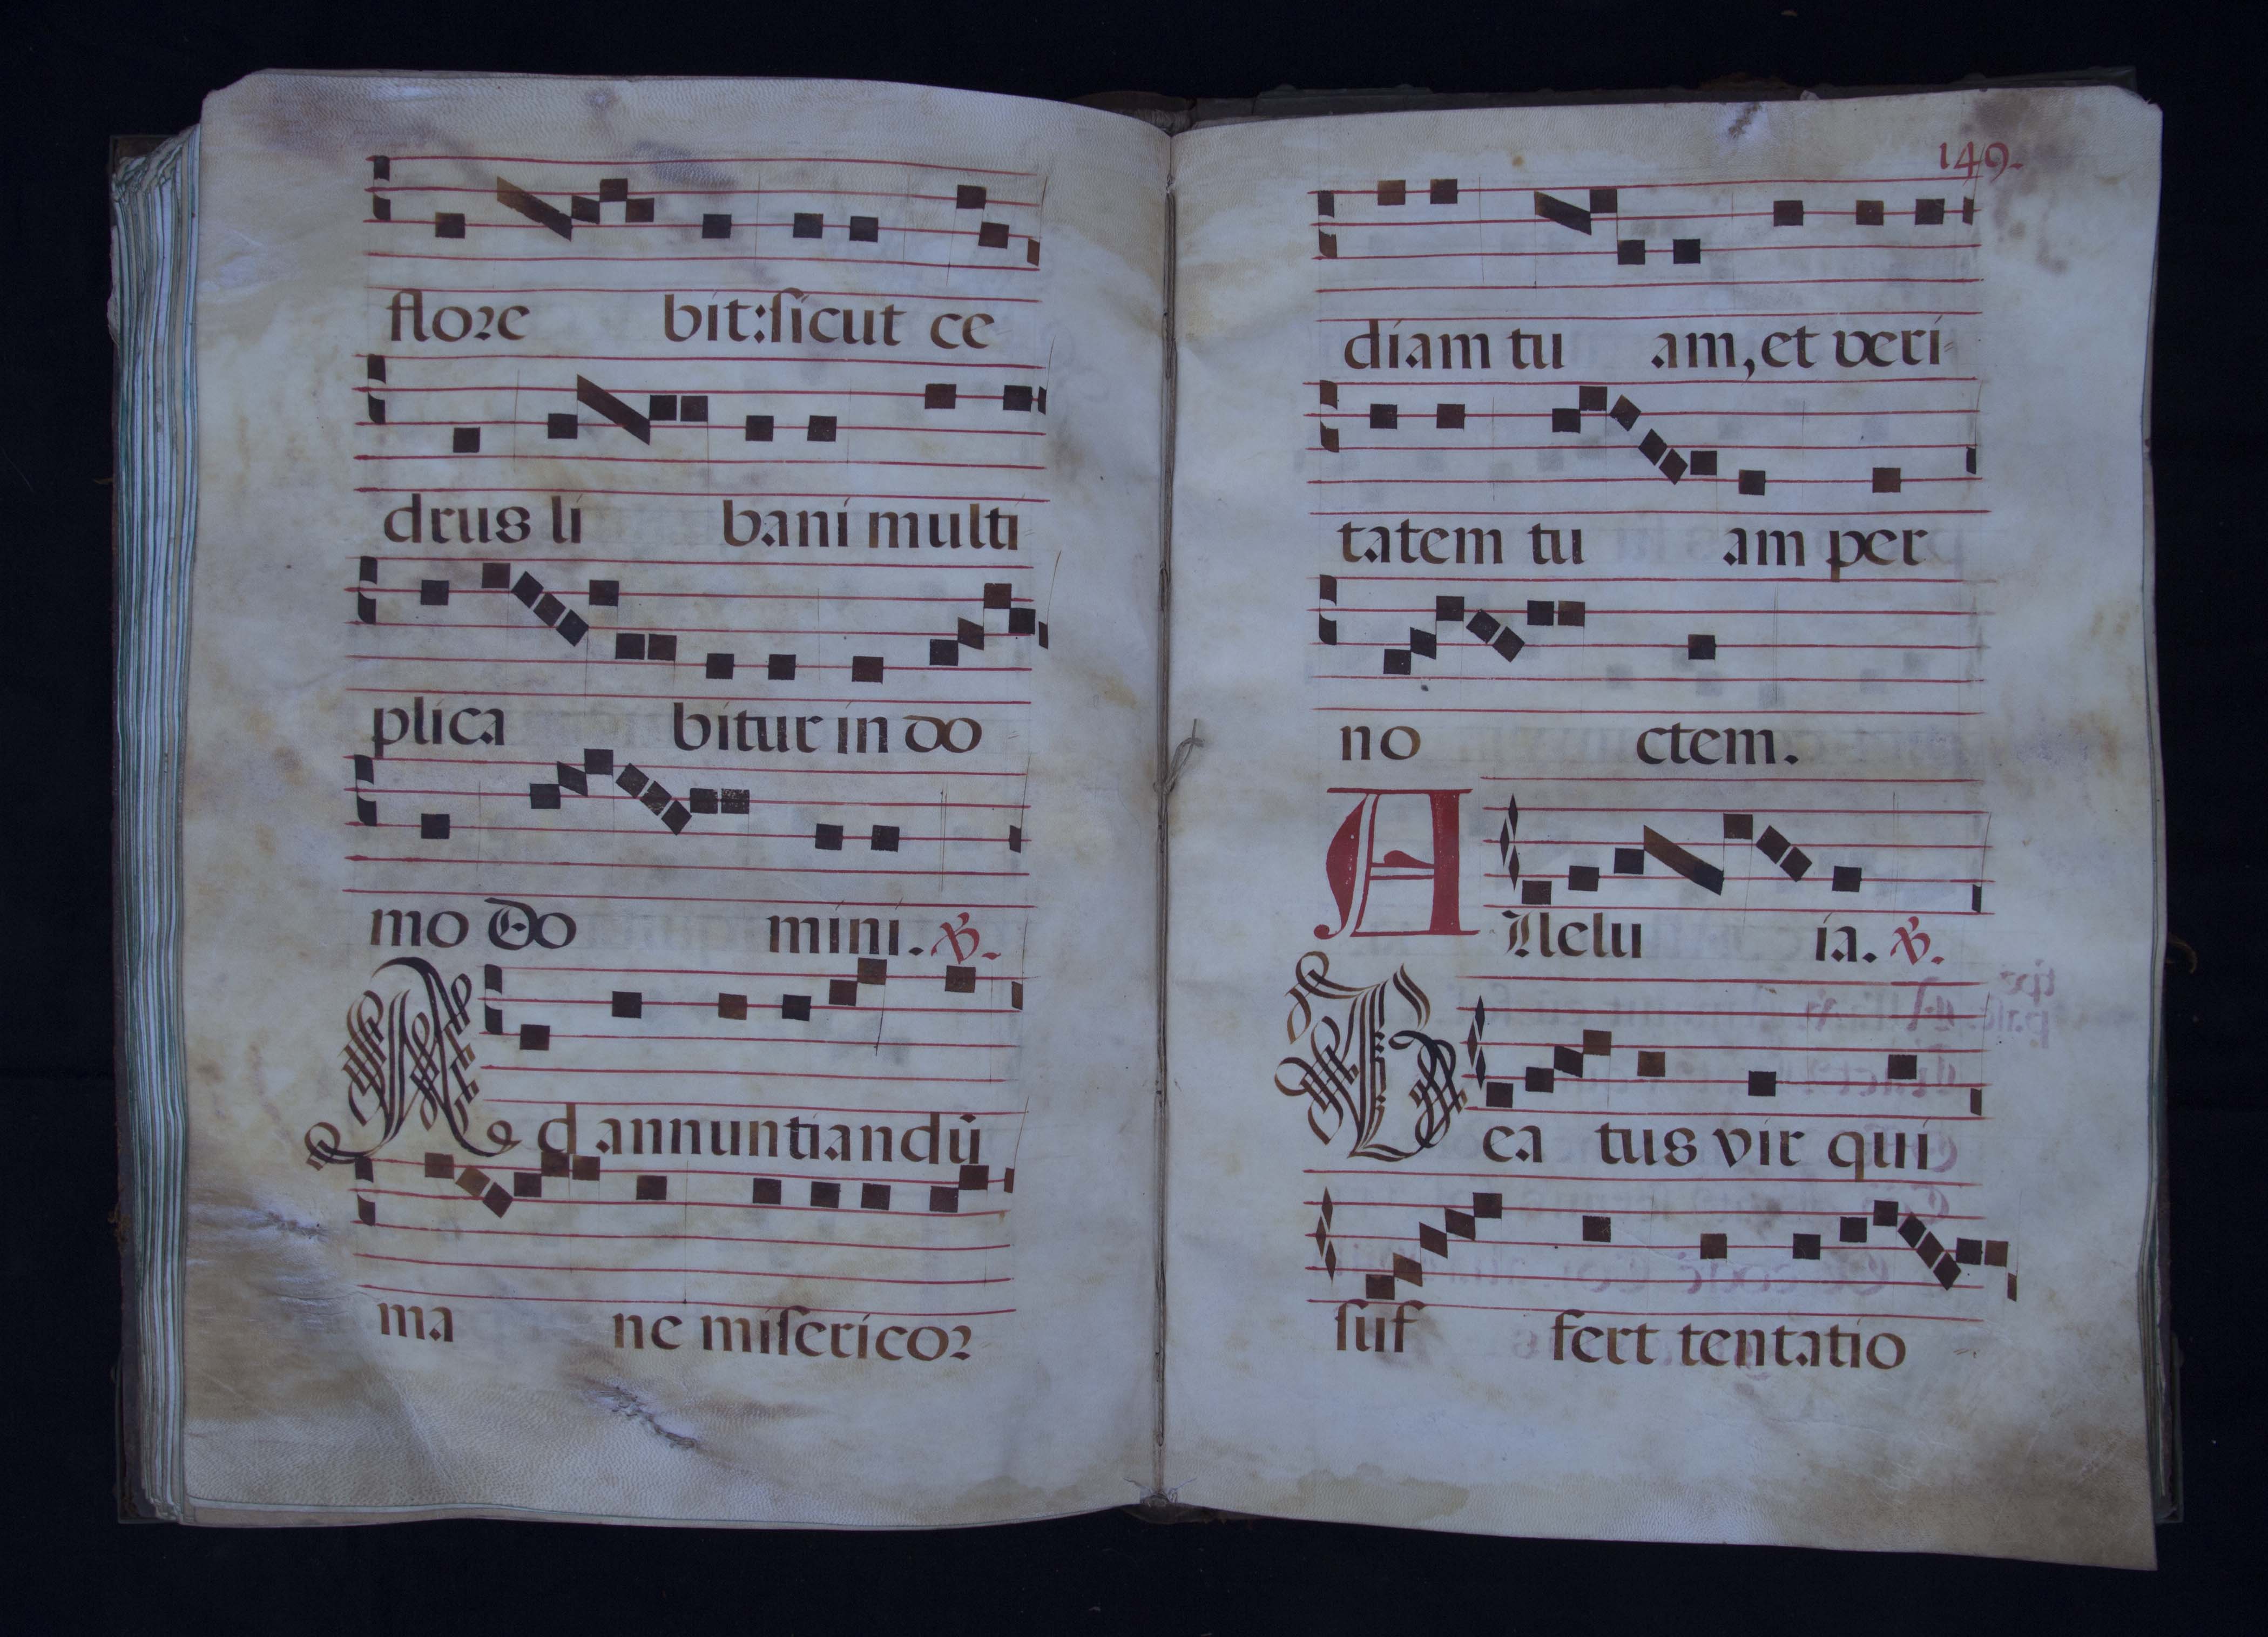 flore bit:sicut ce
drus li bani multi
plica bitur in do
mo Do mini. ℣.
Ad annuntiandũ
ma ne misericor
149.
diam tu am, et veri
tatem tu am per
no ctem.
Allelu ia. ℣.
Bea tus vir qui
suf fert tentatio